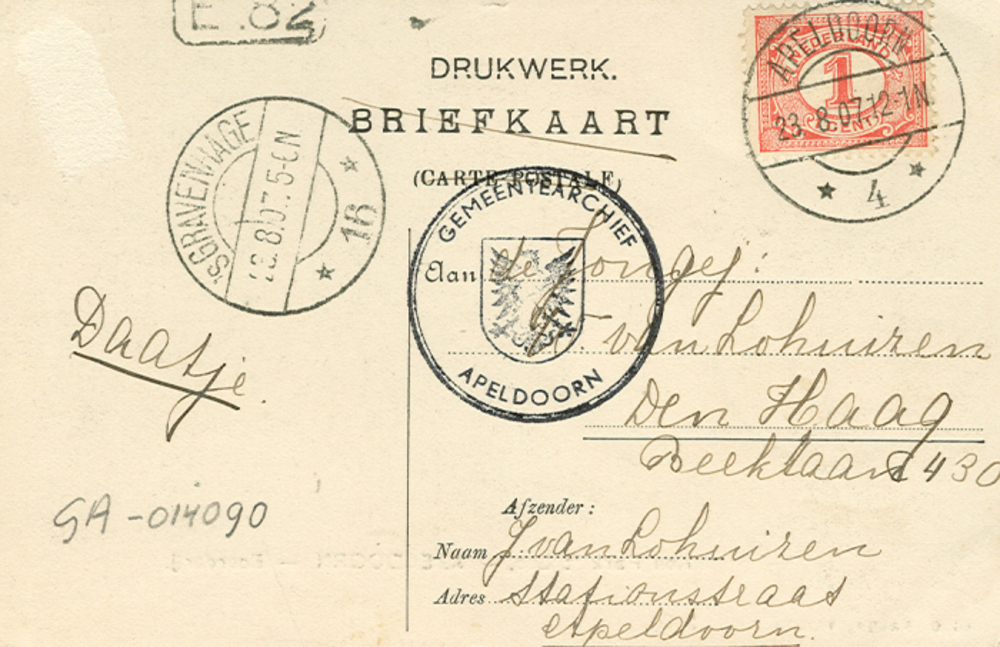 E.82
DRUKWERK.
BRIEFKAART
(CARTE POSTALE)
APELDOORN
23.8.07.12-1N
4
1
CENT
'SGRAVENHAGE
8.07.5-6N
16
GEMEENTEARCHIEF
APELDOORN
Aan de Jongej:
van Lohuizen
Den Haag
Beeklaan 430
Daatje.
GA-014090
Afzender:
Naam J van Lohuizen
Adres Stationstraat
Apeldoorn.